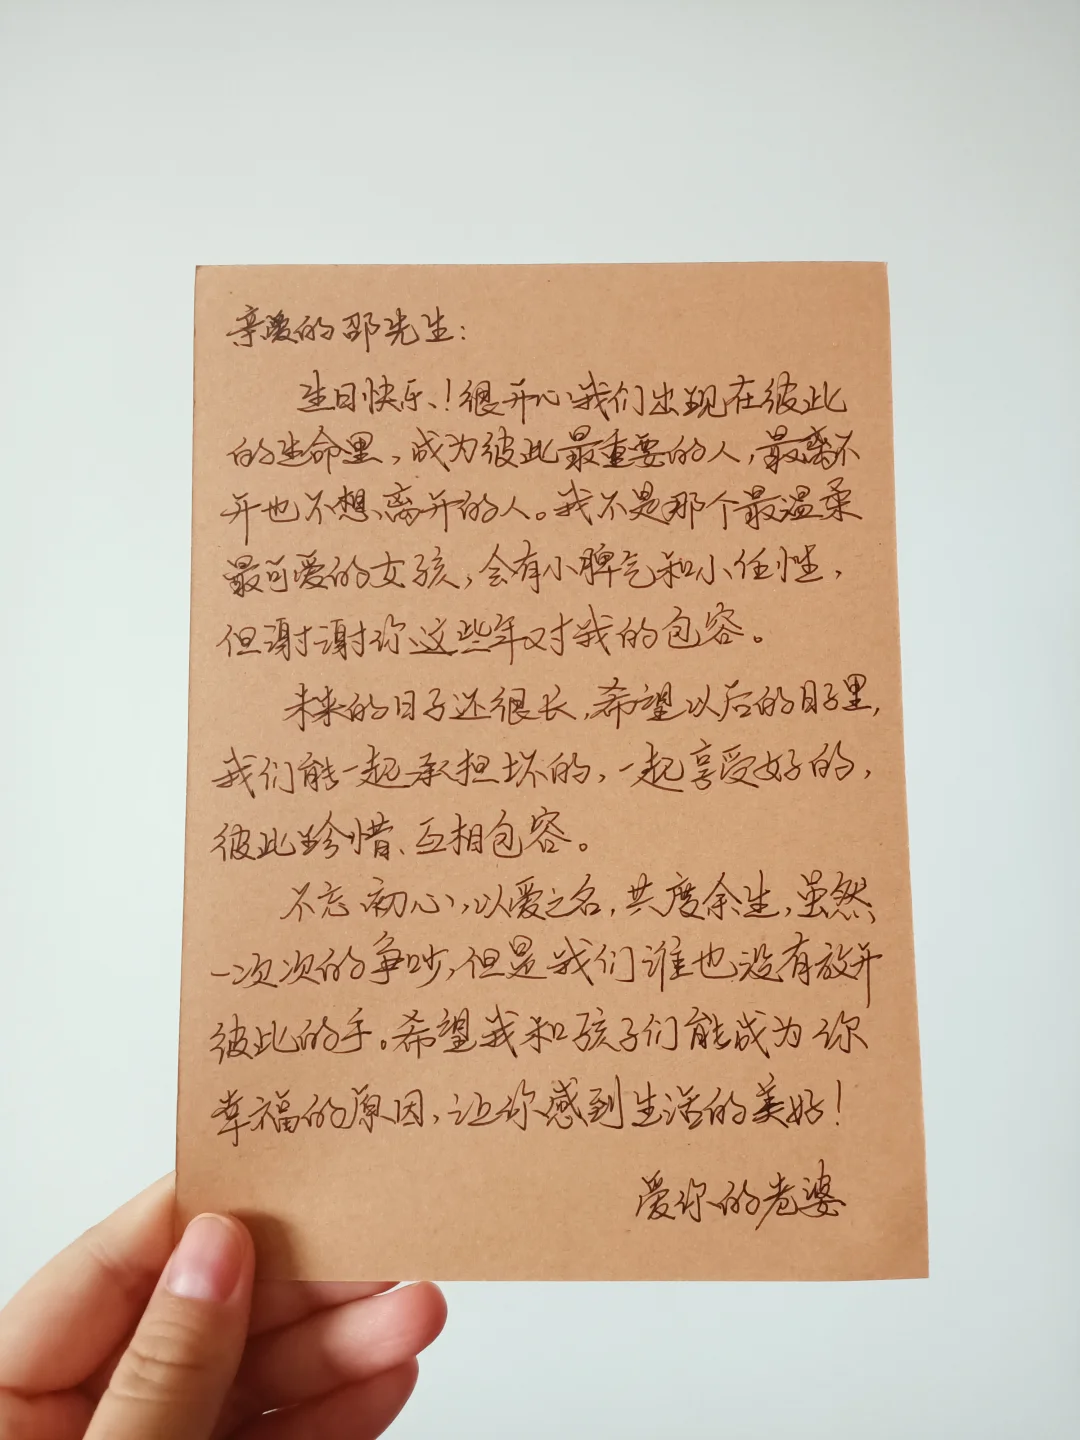 亲爱的邵先生：
生日快乐！很开心我们出现在彼此
的生命里，成为彼此最重要的人，最离不
开也不想离开的人。我不是那个最温柔
最可爱的女孩，会有小脾气和小任性，
但谢谢你这些年对我的包容。
未来的日子还很长，希望以后的日子里，
我们能一起承担坏的，一起享受好的，
彼此珍惜、互相包容。
不忘初心，以爱之名，共度余生，虽然
一次次的争吵，但是我们谁也没有放开
彼此的手。希望我和孩子们能成为你
幸福的原因，让你感到生活的美好！
爱你的老婆